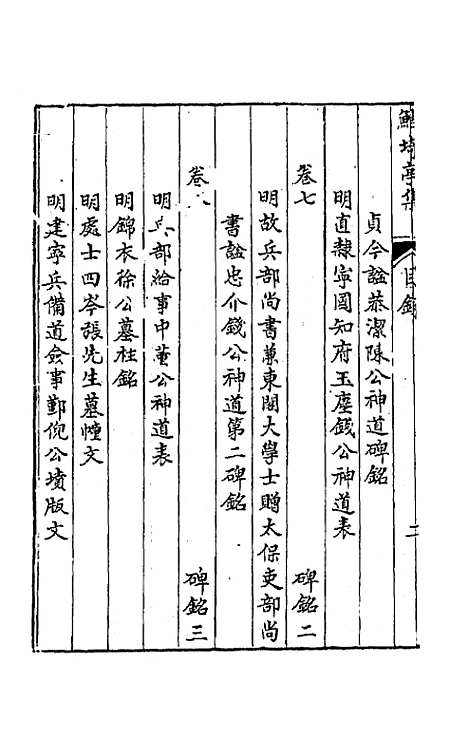 鮚埼亭集 目錄 二
貞今諡恭潔陳公神道碑銘
明直隸寧國知府玉塵錢公神道表
卷七 碑銘二
明故兵部尚書兼東閣大學士贈太保吏部尚
書諡忠介錢公神道第二碑銘
卷八 碑銘三
明兵部給事中董公神道表
明錦衣徐公墓柱銘
明處士四岑張先生墓幢文
明建寧兵備道僉事鄞倪公墳版文